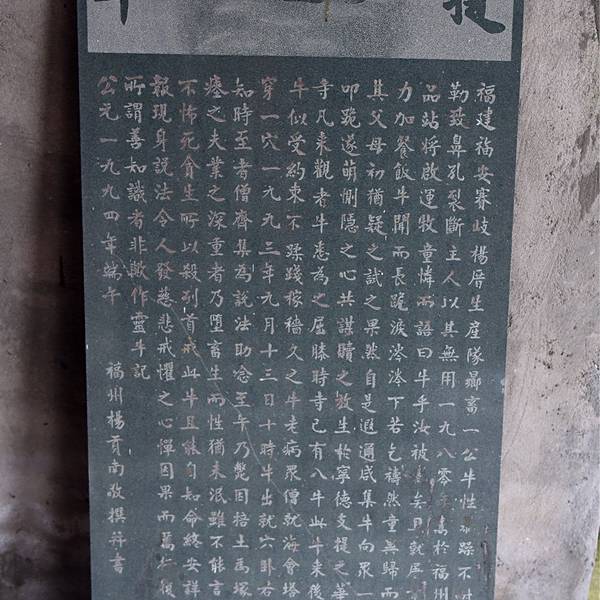 福建福安賽岐楊厝生產隊豢畜一公牛性暴躁不
勒致鼻孔裂斷主人以其無用一九八零年售於福州
品站將啟運牧童憐而語曰牛乎汝被售矣且就屠
力加餐飯牛聞而長跪淚涔涔下若乞禱然童無歸而
其父母初猶疑之試之果然自是遐邇咸集牛向眾一
叩跪遂萌惻隱之心共謀贖之放生於寧德支提之華
寺凡來觀者牛悉為之屈膝時寺已有八牛此牛來後
牛似受約束不蹂踐稼穡久之牛老病眾僧就海會塔
穿一穴一九九三年九月十三日十時牛出就穴卧右
知時至者僧齊集為說法助念至午乃斃因掊土為塚
瘞之夫業之深重者乃墮畜生而性猶未泯雖不能言
不怖死貪生所以殺列首戒此牛且能自知命終安詳
報現身說法令人發慈悲戒懼之心憚因果而篤仁
所謂善知識者非歟作靈牛記
公元一九九四年端午 福州楊貢南敬撰并書